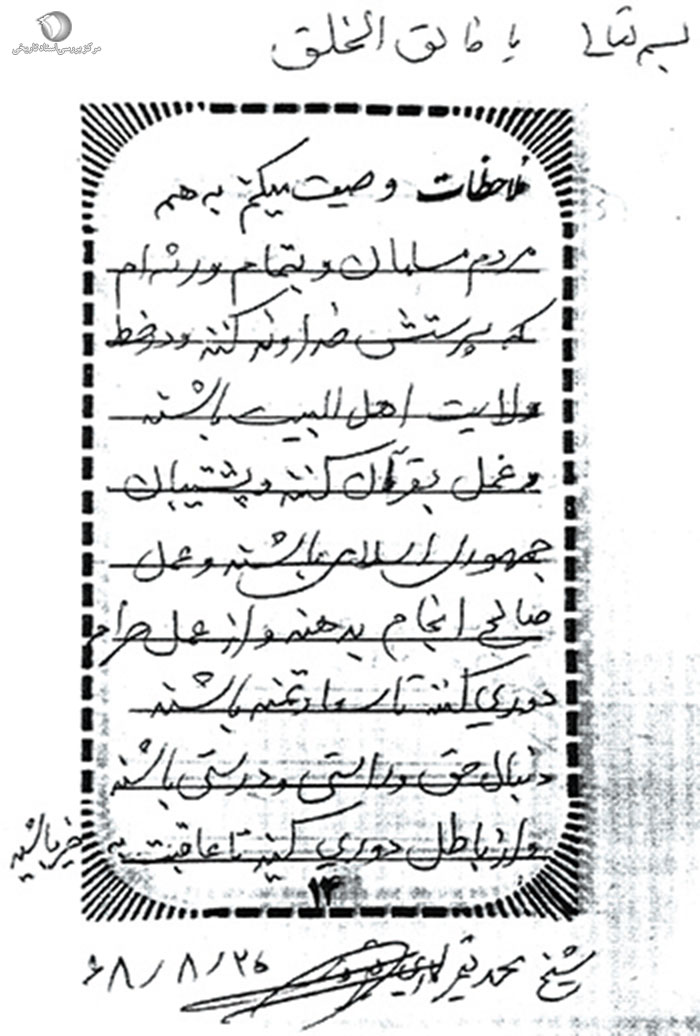 مرکز بررسی اسناد تاریخی
بسم تعالی یا خالق الخلق
ملاحظات وصیت میکنم به همه
مردم مسلمان و بتمام ورثه ام
که پرستش خداوند کنند و در خط
ولایت اهل البیت باشند
و عمل بقرآن کنند و پشتیبان
جمهوری اسلامی باشند و عمل
صالح انجام بدهند و از عمل حرام
دوری کنند تا سعادتمند باشند
دنبال حق و راستی و درستی باشند
و از باطل دوری کنید تا عاقبت به خیر باشید
۱۴
شیخ محمد تقی ۶۸/۸/۲۶